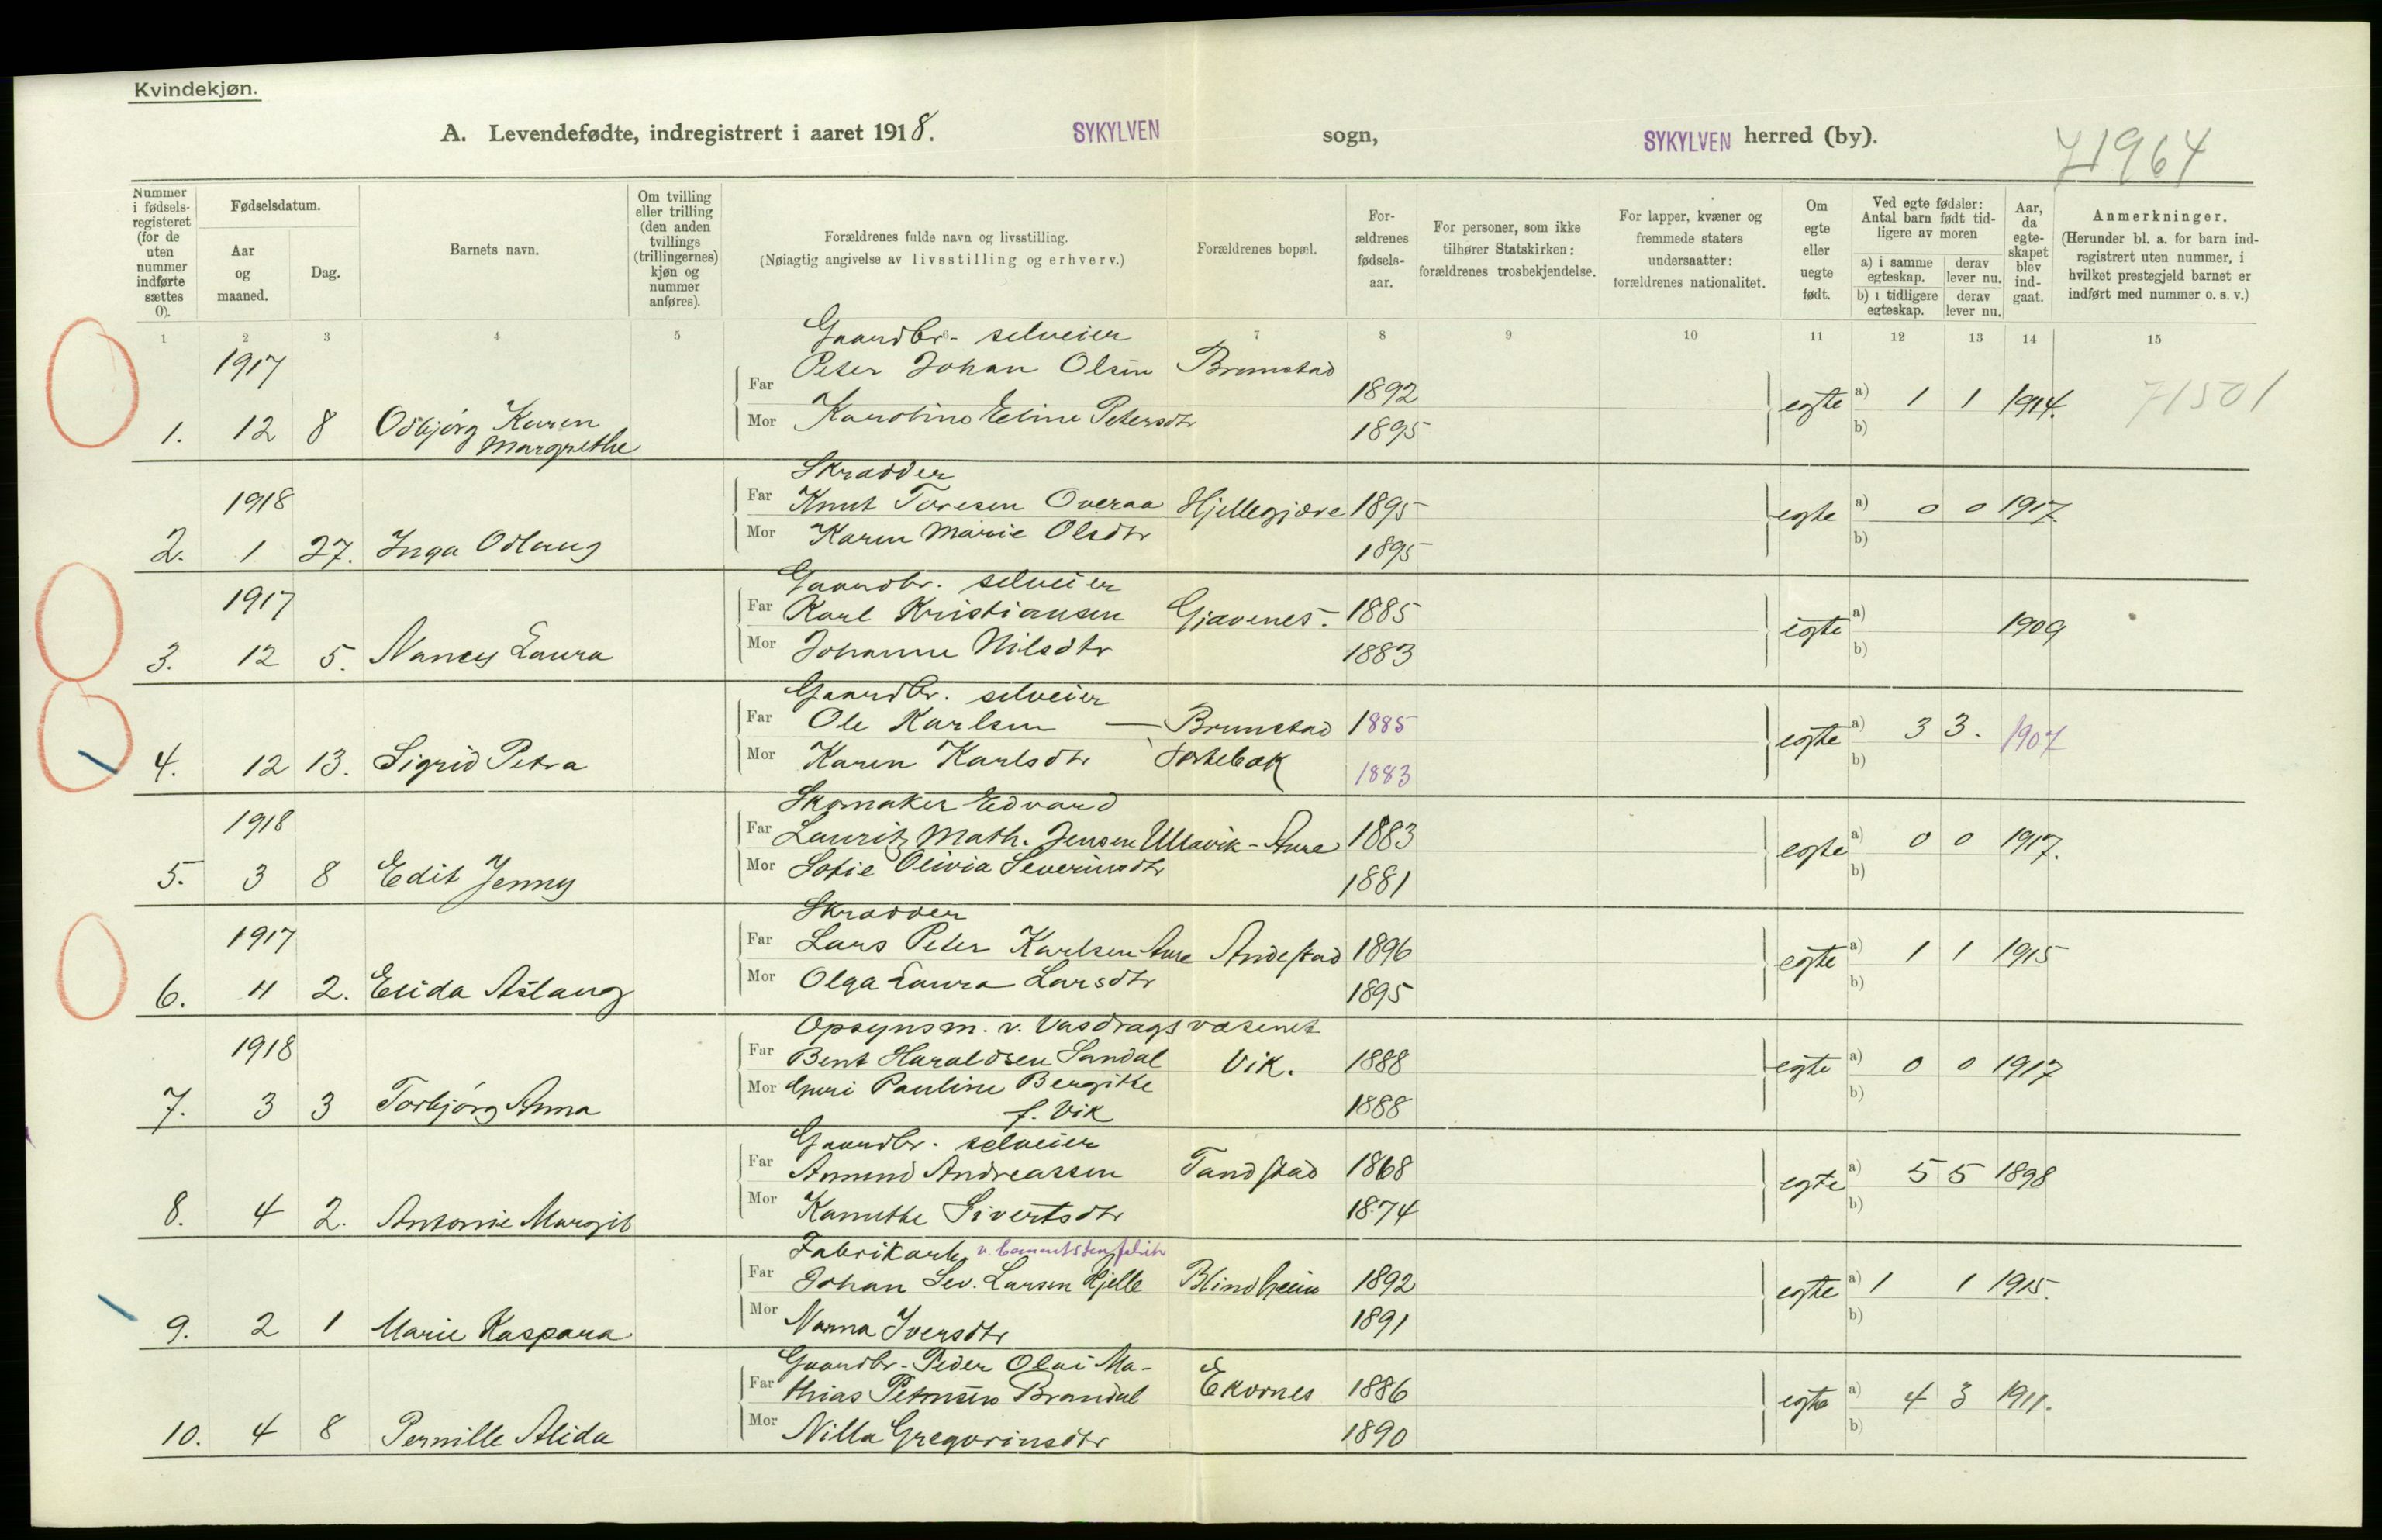 Kvindekjøn.
A. Levendefødte, indregistrert i aaret 1918. SYKYLVEN sogn, SYKYLVEN herred (by). 71964
Nummer i fødsels-registeret (for de uten nummer indførte sættes 0).
Fødselsdatum.
Aar og maaned.
Dag.
Barnets navn.
Om tvilling eller trilling (den anden tvillings (trillingernes) kjøn og nummer anføres).
Forældrenes fulde navn og livsstilling.
(Nøiagtig angivelse av livsstilling og erhverv.)
Forældrenes bopæl.
For-ældrenes fødsels-aar.
For personer, som ikke tilhører Statskirken: forældrenes trosbekjendelse.
For lapper, kvæner og fremmede staters undersaatter: forældrenes nationalitet.
Om egte eller uegte født.
Ved egte fødsler: Antal barn født tid-ligere av moren
a) i samme egteskap. derav lever nu.
b) i tidligere egteskap. derav lever nu.
Aar, da egte-skapet blev ind-gaat.
Anmerkninger.
(Herunder bl. a. for barn ind-registrert uten nummer, i hvilket prestegjeld barnet er indført med nummer o. s. v.)
1 2 3 4 5 6 7 8 9 10 11 12 13 14 15
Gaardbr- selveier
1917 Far Peter Johan Olsen Brunstad 1892
1. 12 8 Odbjørg Karen Margrethe Mor Karoline Eline Petersdtr 1895 egte a) 1 1 1914. 71501
b)
Skradder
1918 Far Knut Toresen Overaa Hjellegjære 1895 egte a) 0 0 1917.
2. 1 27. Inga Odlaug Mor Karen Marie Olsdtr 1895 b)
Gaardbr. selveier
1917 Far Karl Kristiansen Gjævenes. 1885 egte a) 1909
3. 12 5. Nancy Laura Mor Johanne Nilsdtr 1883 b)
Gaardbr. selveier
Far Ole Karlsen — Brunstad 1885 egte a) 3 3. 1907
4. 12 13. Sigrid Petra Mor Karen Karlsdtr 1883 b)
Skomaker Edvard
1918 Far Lauritz Math. Jensen Ullavik - Aure 1883 egte a) 0 0 1917.
5. 3 8 Edit Jenny Mor Sofie Olivia Severinsdtr 1881 b)
Skradder
1917 Far Lars Peter Karlsen Aure Andestad 1896 egte a) 1 1 1915
6. 11 2. Elida Aslaug Mor Olga Laura Larsdtr 1895 b)
Opsynsm. v. Vasdragsvæsenet
1918 Far Bent Haraldsen Sandal Vik. 1888 egte a) 0 0 1917
7. 3 3 Torbjørg Anna Mor Guri Pauline Bergitte f. Vik 1888 b)
Gaardbr. selveier
Far Amund Andreassen Tandstad 1868 egte a) 5 5 1898
8. 4 2. Antonie Margit Mor Kanutte Sivertsdtr 1874 b)
Fabrikarb. v. Cementstenfabrik
Far Johan Sev. Larsen Hjelle Blindheim 1892 egte a) 1 1 1915.
9. 2 1 Marie Kaspara Mor Nanna Iversdtr 1891 b)
Gaardbr- Peder Olai Ma-
Far thias Petersen Brandal Ekornes 1886 egte a) 4 3 1911.
10. 4 8 Pernille Alida Mor Nilla Gregoriusdtr 1890 b)